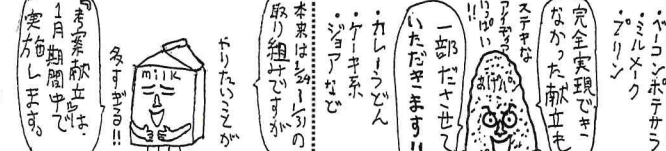 ・ベーコンポテサラ
・ミルメーク
・プリン
完全実現でき
なかった献立も
ステキな
アイディア
いっぱい!!
あげパン
一部ださせて
いただきます!!
・カレーうどん
・ケーキ系
・ジョアなど
本来は1/29~1/31の
取り組みですが
やりたいことが
多すぎる!!
milk
『考案献立』は、
1月期間中で
実施します。